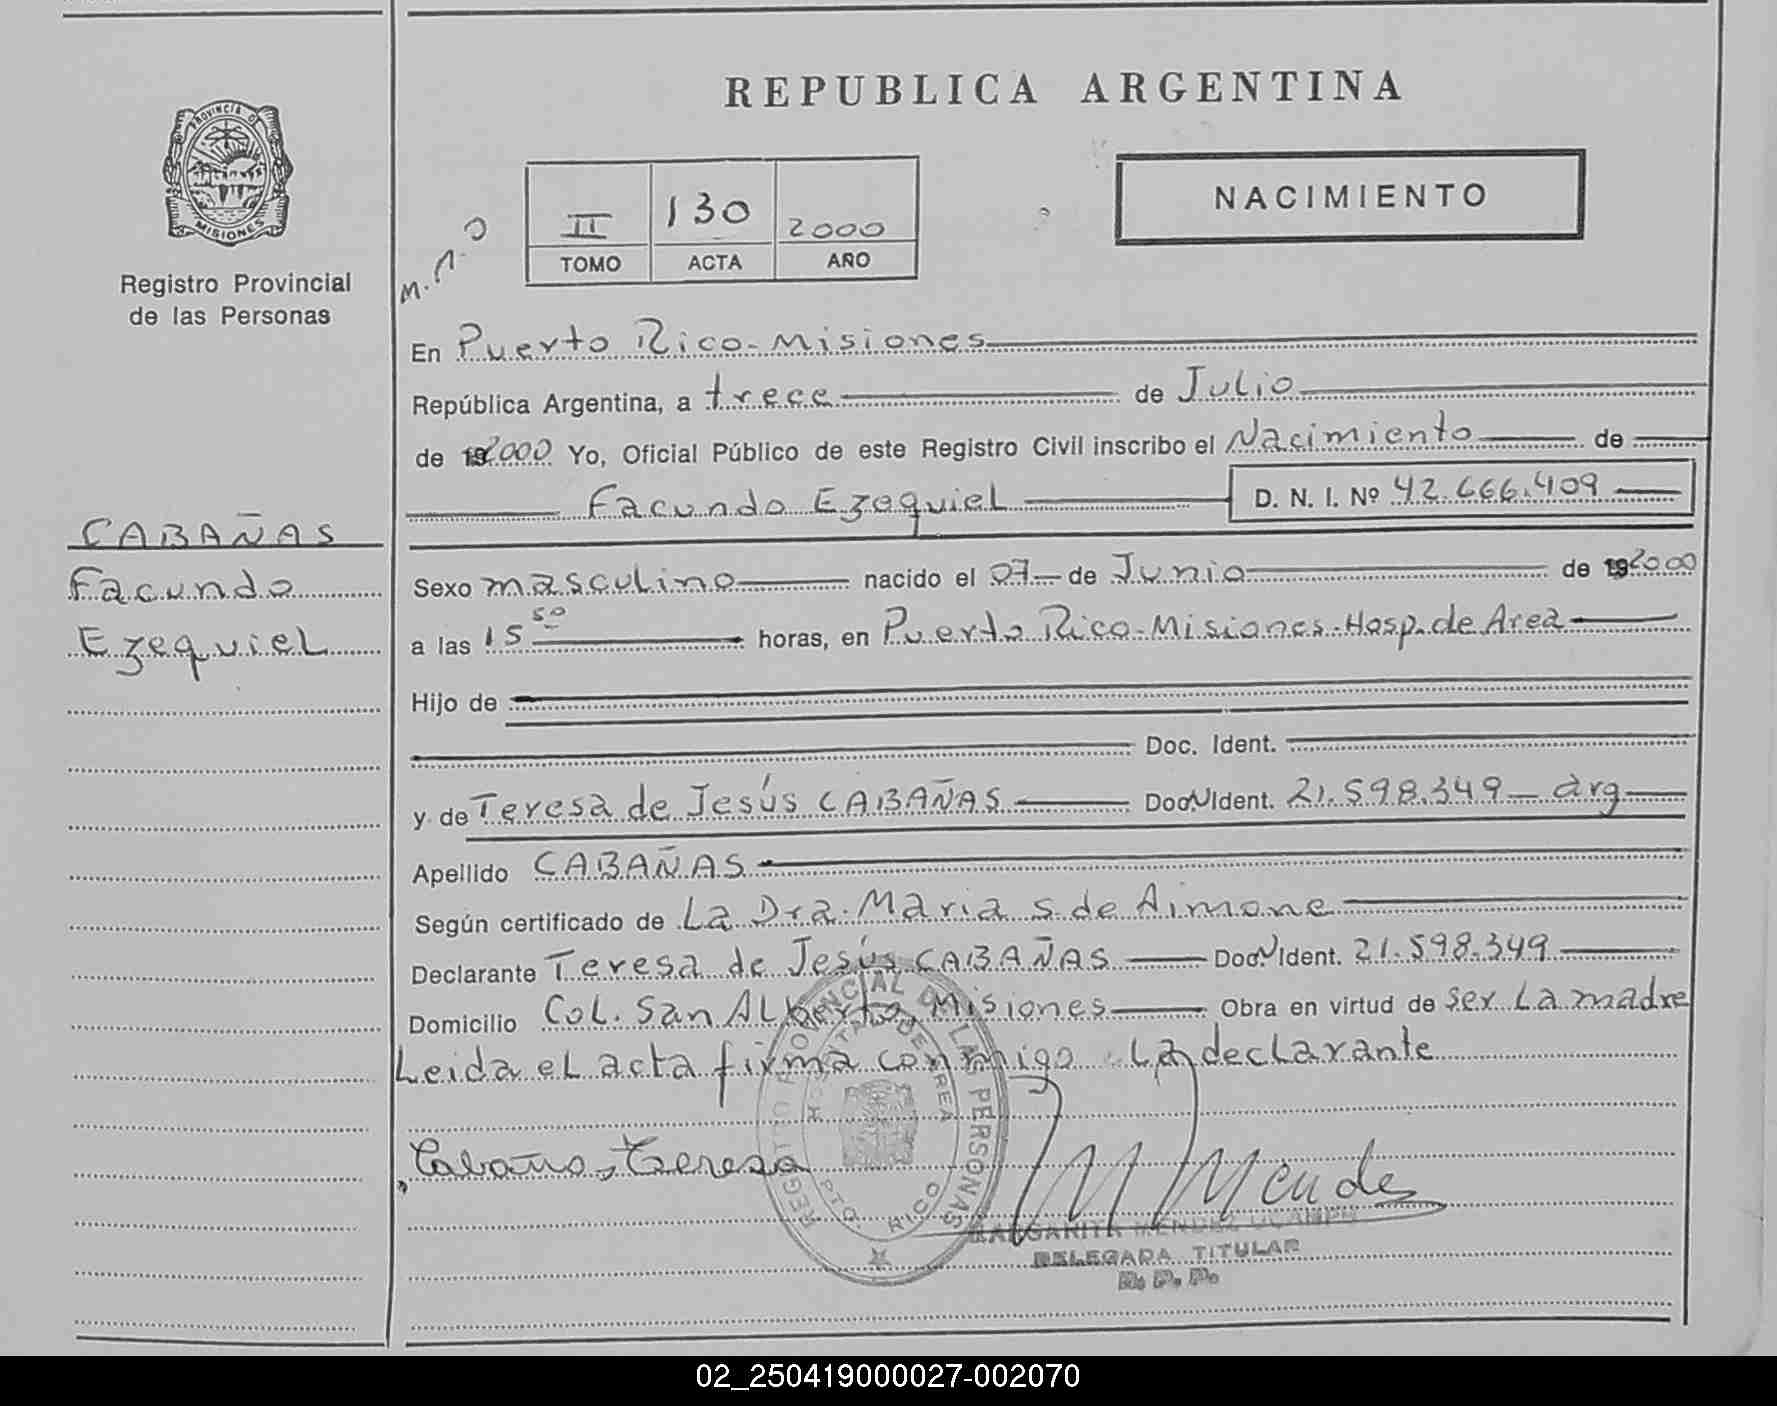 REPUBLICA ARGENTINA
PROVINCIA DE
MISIONES
Registro Provincial
de las Personas
II 130 2000
TOMO ACTA AÑO
NACIMIENTO
En Puerto Rico - Misiones
República Argentina, a trece de Julio
de 2000 Yo, Oficial Público de este Registro Civil inscribo el Nacimiento de
Facundo Ezequiel D. N. I. Nº 42.666.409
CABAÑAS
Facundo
Ezequiel
Sexo masculino nacido el 07 de Junio de 2000
a las 15 50 horas, en Puerto Rico - Misiones - Hosp. de Area
Hijo de
Doc. Ident.
y de Teresa de Jesús CABAÑAS Doc. Ident. 21.598.349 - arg
Apellido CABAÑAS
Según certificado de La Dra. Maria S. de Aimone
Declarante Teresa de Jesús CABAÑAS Doc. Ident. 21.598.349
Domicilio Col. San Alberto, Misiones Obra en virtud de ser La madre
Leida el acta firma conmigo La declarante
Cabañas Teresa
REGISTRO PROVINCIAL DE LAS PERSONAS
HOSPITAL DE AREA
PTO. RICO
M Mendez
MARGARITA MENDEZ OCAMPO
DELEGADA TITULAR
R. P. P.
02_250419000027-002070